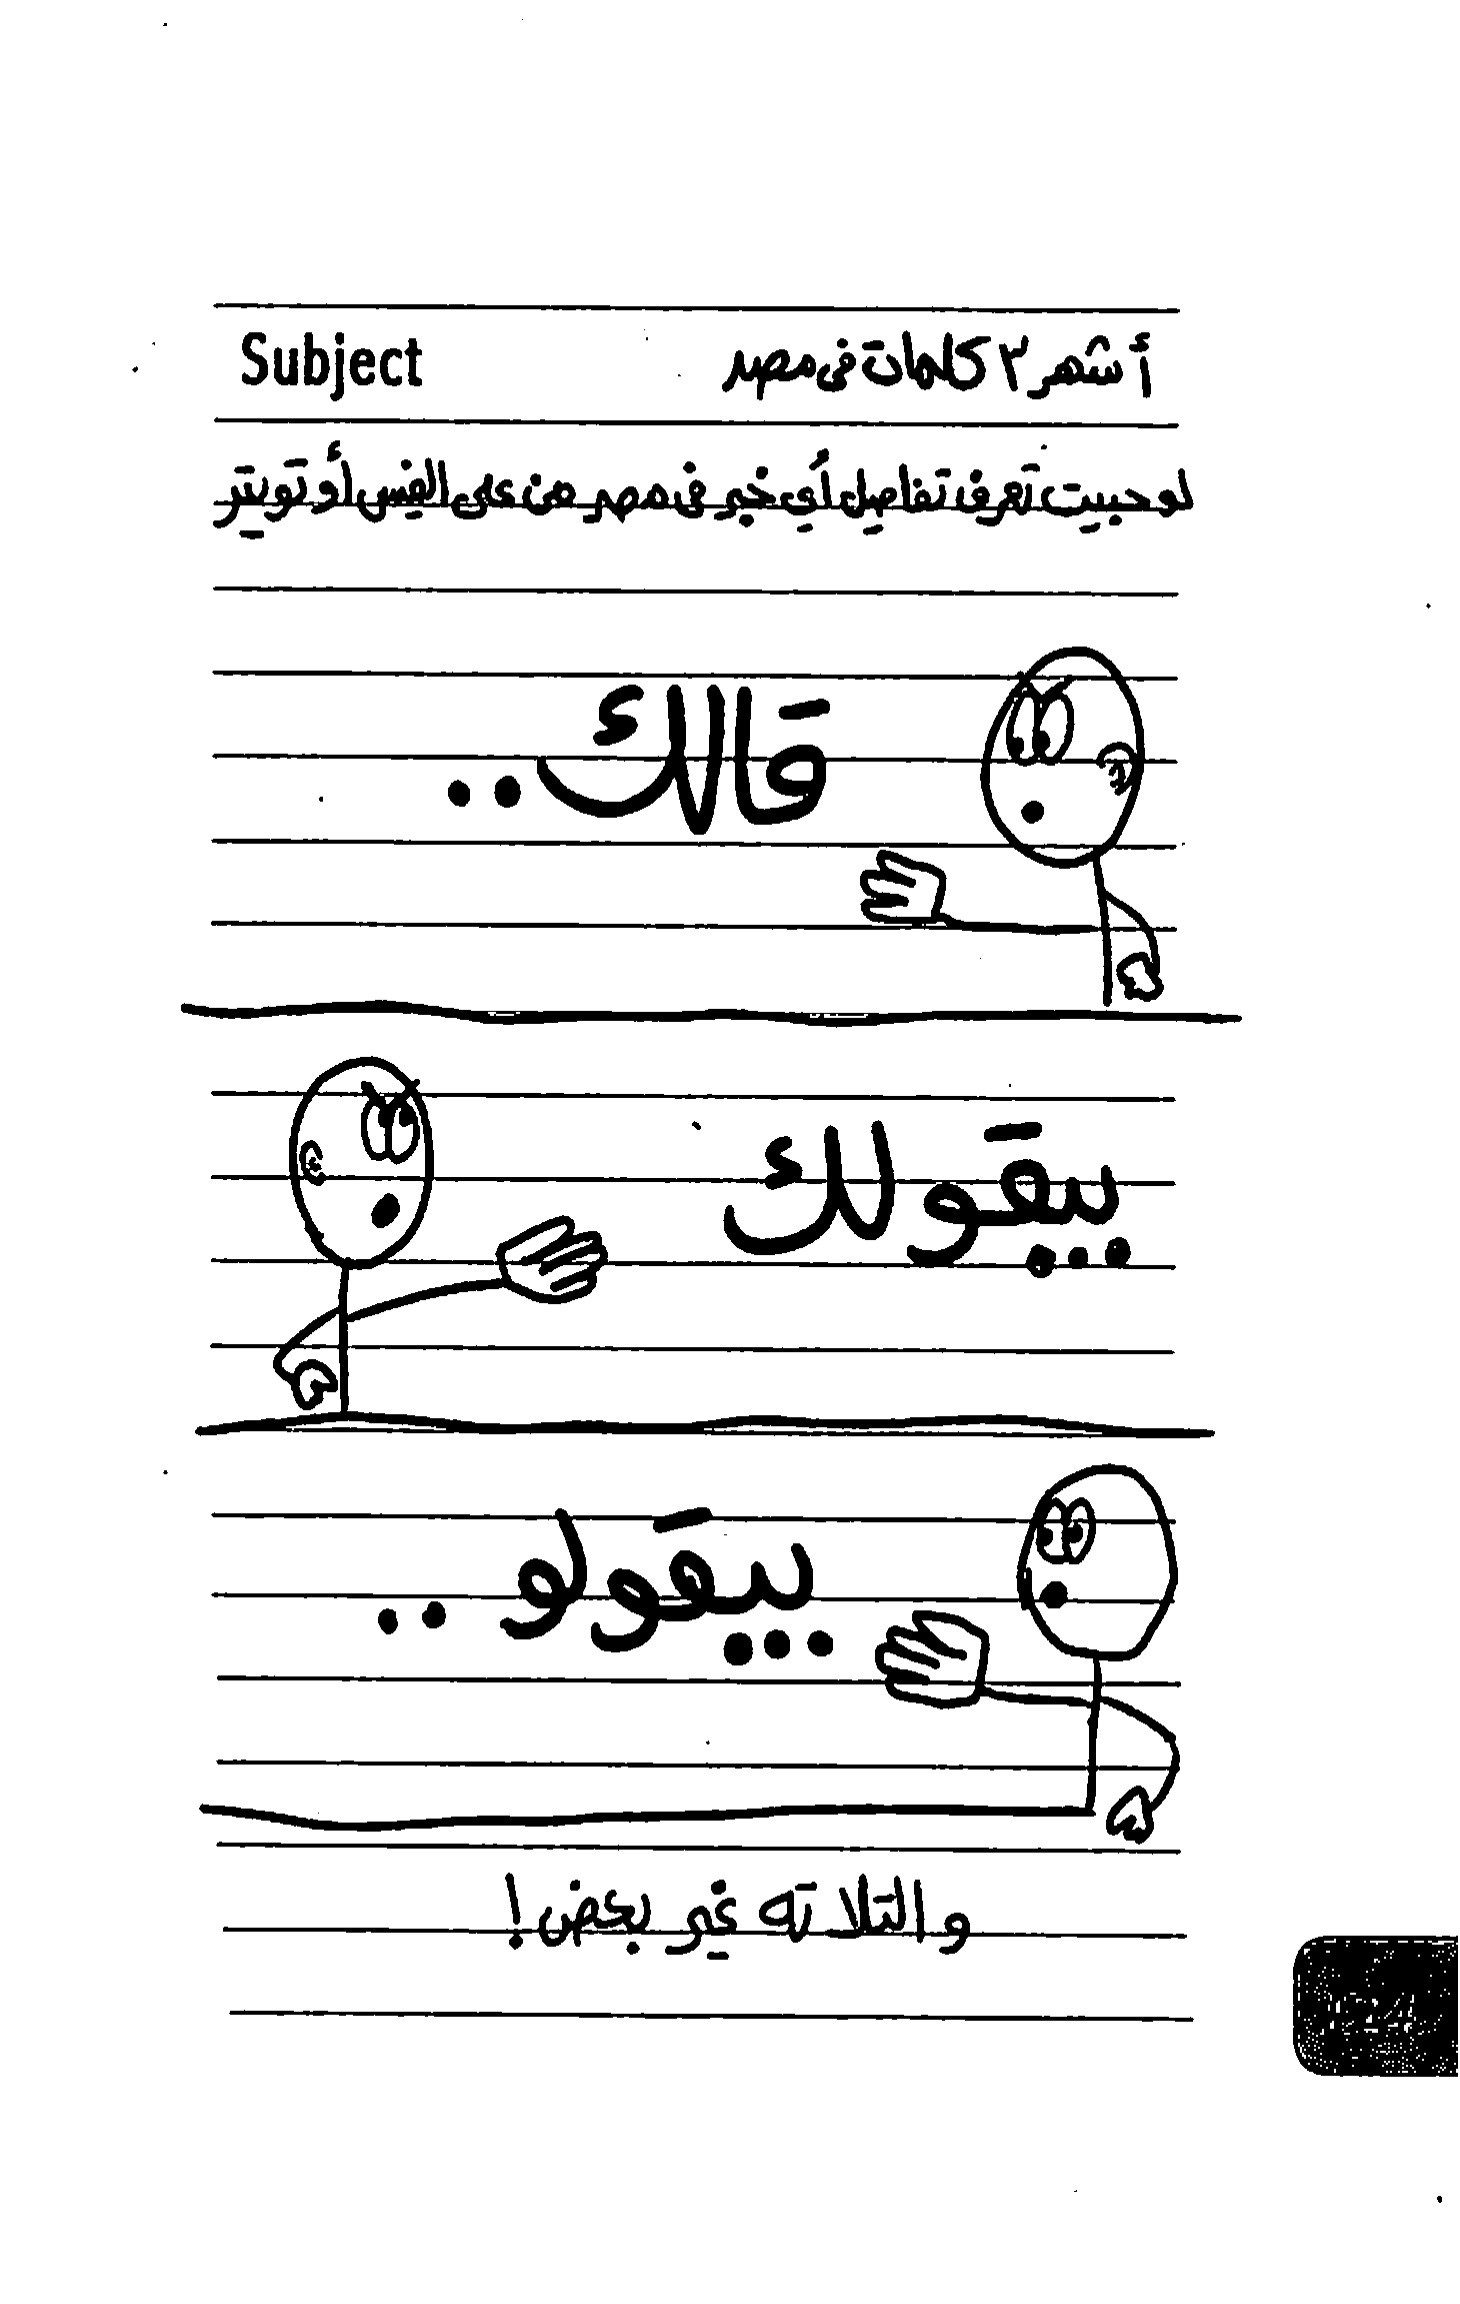 Subject أشهر ٣ كلمات فى مصر
لو حبيت تعرف تفاصيل أي خبر فى مصر من على الفيس أو تويتر
قالك..
بيقولك
بيقولو..
والتلاته غير بعض!